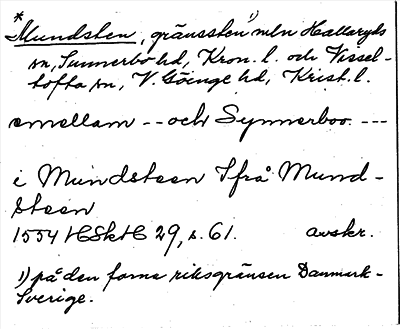 * Mundsten, gränssten¹⁾ mln Hallaryds
sn, Sunnerbo hd, Kron. l. och Vissel-
tofta sn, V. Göinge hd, Krist. l.
emellam -- och Synnerboo. ---
i Mundsteen Ifrå Mund-
steen
1554 HSkH 29, s. 61. avskr.
1) på den forna riksgränsen Danmark-
Sverige.